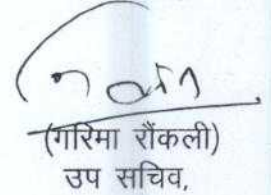 (गरिमा रौंकली)
उप सचिव,